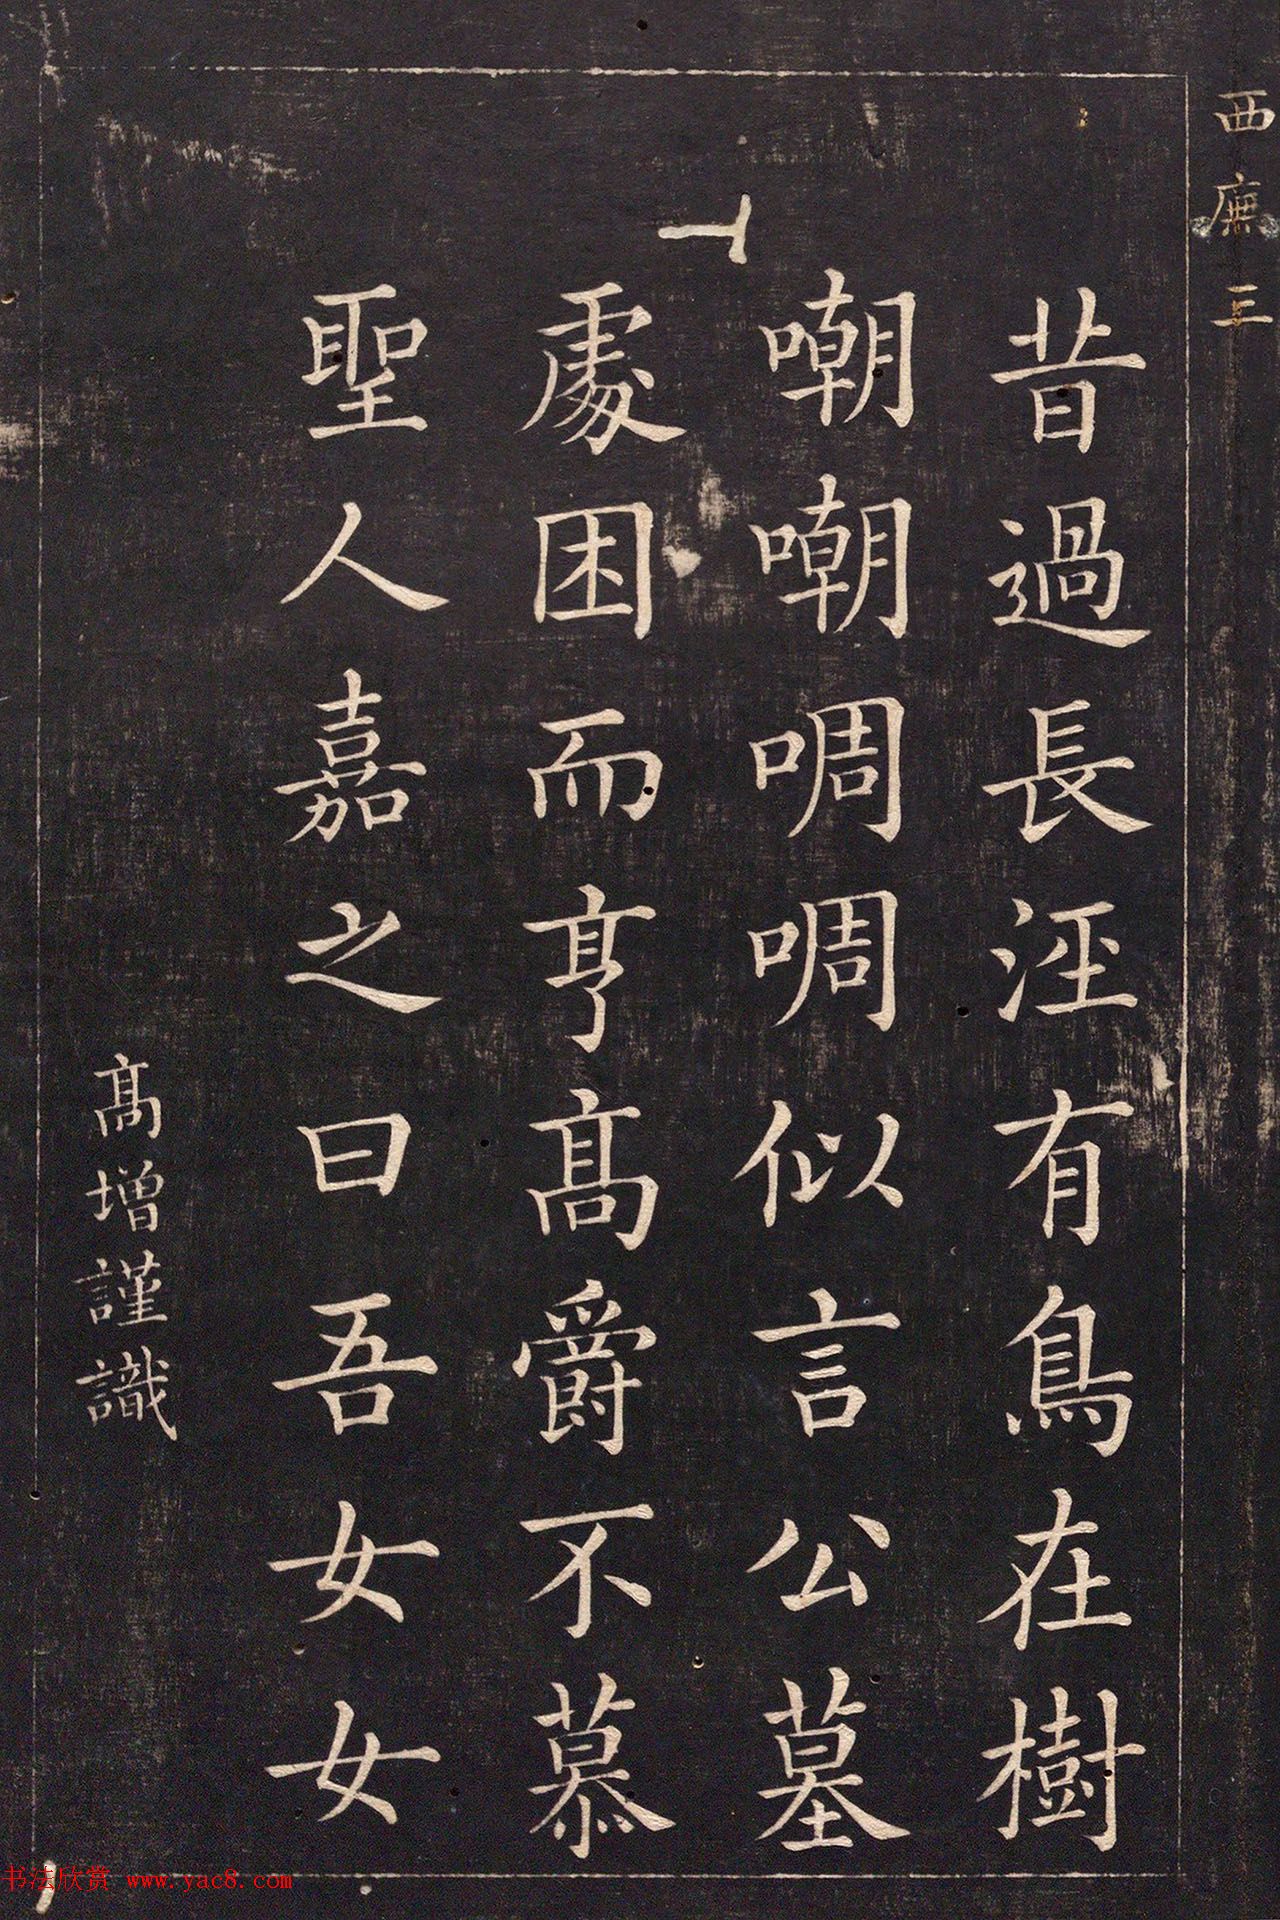 西廡三
昔過長涇有鳥在樹
嘲嘲啁啁似言公墓
處困而亨高爵不慕
聖人嘉之曰吾女女
高增謹識
书法欣赏 www.yac8.com